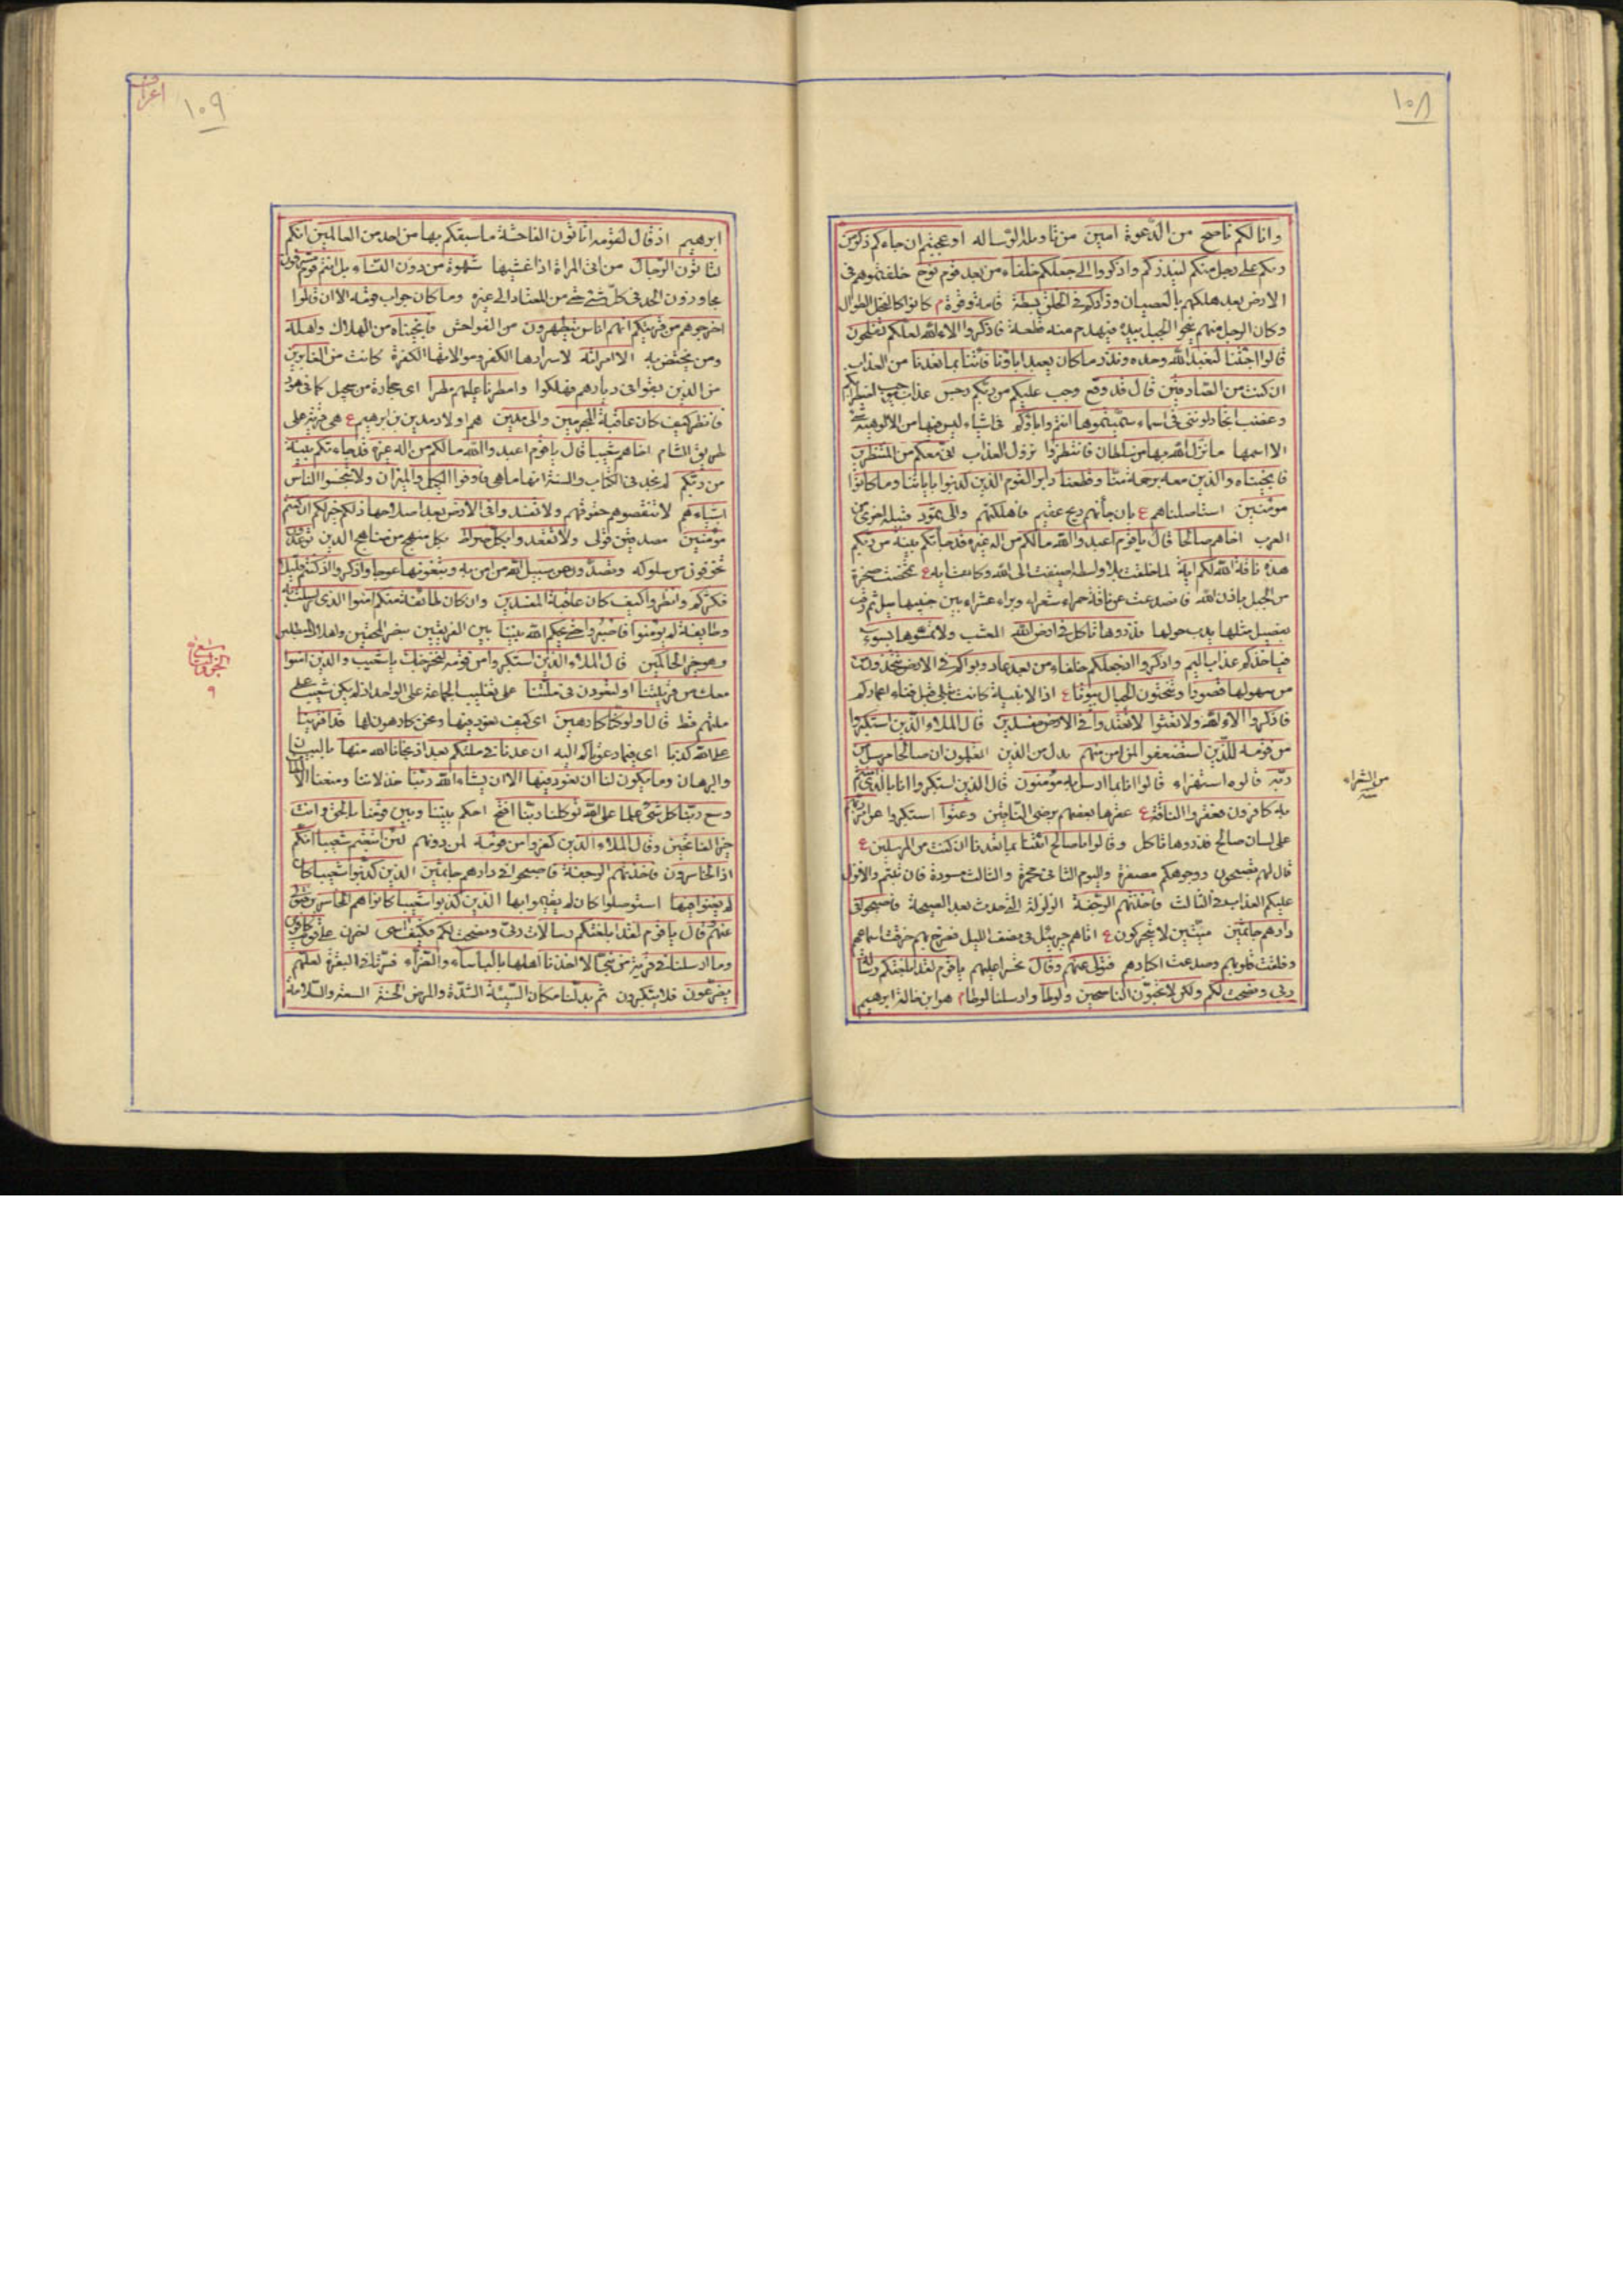 ١٠٨
وانا لكم ناصح من الدعوة امين من تاوية الرسالة اوعجبتم ان جاءكم ذكر من
ربكم على رجل منكم لينذركم واذكروا اذ جعلكم خلفاء من بعد قوم نوح خلفتموهم في
الارض بعد هلكهم بالعصيان وزادكم في الخلق بسطة قامة وقوة م كانوا كالنخل الطوال
وكان الرجل منهم ينحو الجبل بيده فيهدم منه قطعة فاذكروا الاء الله لعلكم تفلحون
قالوا اجئتنا لنعبد الله وحده ونذر ما كان يعبد اباؤنا فاتنا بما تعدنا من العذاب
ان كنت من الصادقين قال قد وقع وجب عليكم من ربكم رجس عذاب
وغضب اتجادلونني في اسماء سميتموها انتم واباؤكم في اشياء ليس فيها من الالوهية
الا اسمها ما نزل الله بها من سلطان فانتظروا نزول العذاب اني معكم من المنتظرين
فانجيناه والذين معه برحمة منا وقطعنا دابر القوم الذين كذبوا باياتنا وما كانوا
مؤمنين استاصلناهم ع بان جاءتهم ريح عقيم فاهلكتهم والى ثمود قبيلة اخرى من
العرب اخاهم صالحا قال يا قوم اعبدوا الله ما لكم من اله غيره قد جاءتكم بينة من ربكم
هذه ناقة الله لكم اية لما خلقت بلا واسطة اضيفت الى الله وكانت اية ع تمخضت صخرة
من الجبل باذن الله فانصدعت عن ناقة حمراء شعراء وبراء عشراء بين جنبيها ميل ثم
بفصيل مثلها يدب حولها فذروها تاكل في ارض الله العشب ولا تمسوها بسوء
فياخذكم عذاب اليم واذكروا اذ جعلكم خلفاء من بعد عاد وبواكم في الارض تتخذون
من سهولها قصورا وتنحتون الجبال بيوتا ع اذ الابنية كانت تبلى قبل فناء اعماركم
فاذكروا الاء الله ولا تعثوا لا تعتدوا في الارض مفسدين قال الملاء الذين استكبروا
من قومه للذين استضعفوا لمن امن منهم بدل من الذين اتعلمون ان صالحا مرسل من
ربه قالوه استهزاء قالوا انا بما ارسل به مؤمنون قال الذين استكبروا انا بالذي امنتم
من الشراء
به كافرون فعقروا الناقة ع عقرها بعضهم برضى الباقين وعتوا استكبروا عن امر ربهم
على لسان صالح فذروها تاكل وقالوا يا صالح ائتنا بما تعدنا ان كنت من المرسلين ع
قال لهم تصبحون ووجوهكم مصفرة واليوم الثاني محمرة والثالث مسودة فان تبتم والا نزل
عليكم العذاب في الثالث فاخذتهم الرجفة الزلزلة التي حدثت بعد الصيحة فاصبحوا في
دارهم جاثمين ميتين لا يتحركون ع اتاهم جبرئيل في نصف الليل فصرخ بهم خرقت اسماعهم
وفلقت قلوبهم وصدعت اكبادهم فتولى عنهم وقال تحسرا عليهم يا قوم لقد ابلغتكم رسالة
ربي ونصحت لكم ولكن لا تحبون الناصحين ولوطا وارسلنا لوطا م هو ابن خالة ابرهيم
١٠٩
اعراف
ابرهيم اذ قال لقومه اتاتون الفاحشة ما سبقكم بها من احد من العالمين انكم
لتاتون الرجال من اتى المراة اذا غشيها شهوة من دون النساء بل انتم قوم مسرفون
مجاوزون الحد في كل شئ حتى من المعتاد الى غيره وما كان جواب قومه الا ان قالوا
اخرجوهم من قريتكم انهم اناس يتطهرون من الفواحش فانجيناه من الهلاك واهله
ومن يختص به الا امراته لاسرارها الكفر وموالاتها الكفرة كانت من الغابرين
من الذين بقوا في ديارهم فهلكوا وامطرنا عليهم مطرا اي حجارة من سجيل كما في هود
فانظر كيف كان عاقبة المجرمين والى مدين هم اولاد مدين بن ابرهيم ع هي قرية على
طريق الشام اخاهم شعيبا قال يا قوم اعبدوا الله ما لكم من اله غيره قد جاءتكم بينة
من ربكم لم نجد في الكتاب والسنة انها ما هي فاوفوا الكيل والميزان ولا تبخسوا الناس
اشياءهم لا تنقصوهم حقوقهم ولا تفسدوا في الارض بعد اصلاحها ذلكم خير لكم ان كنتم
مؤمنين مصدقين قولي ولا تقعدوا بكل صراط بكل منهج من مناهج الدين توعدون
تخوفون من سلوكه وتصدون عن سبيل الله من امن به وتبغونها عوجا واذكروا اذ كنتم قليلا
فكثركم وانظروا كيف كان عاقبة المفسدين وان كان طائفة منكم امنوا بالذي ارسلت به
وطائفة لم يؤمنوا فاصبروا حتى يحكم الله بيننا بين الفريقين بنصر المحقين واهلاك المبطلين
وهو خير الحاكمين قال الملاء الذين استكبروا من قومه لنخرجنك يا شعيب والذين امنوا
الجزو التاسع
٩
معك من قريتنا او لتعودن في ملتنا على تغليب الجماعة على الواحد اذ لم يكن شعيب على
ملتهم قط قال اولو كنا كارهين اي كيف نعود فيها ونحن كارهون لها قد افترينا
على الله كذبا اي فيما دعوناكم اليه ان عدنا في ملتكم بعد اذ نجانا الله منها بالبيان
والبرهان وما يكون لنا ان نعود فيها الا ان يشاء الله ربنا خذلاننا ومنعنا الالطاف
وسع ربنا كل شئ علما على الله توكلنا ربنا افتح احكم بيننا وبين قومنا بالحق وانت
خير الفاتحين وقال الملاء الذين كفروا من قومه لمن دونهم لئن اتبعتم شعيبا انكم
اذا لخاسرون فاخذتهم الرجفة فاصبحوا في دارهم جاثمين الذين كذبوا شعيبا كان
لم يغنوا فيها استوصلوا كان لم يقيموا بها الذين كذبوا شعيبا كانوا هم الخاسرين فتولى
عنهم وقال يا قوم لقد ابلغتكم رسالات ربي ونصحت لكم فكيف اسى احزن على قوم كافرين
وما ارسلنا في قرية من نبي الا اخذنا اهلها بالباساء والضراء لعلهم
يضرعون فلا يتكبرون ثم بدلنا مكان السيئة الشدة والمرض الحسنة السعة والسلامة